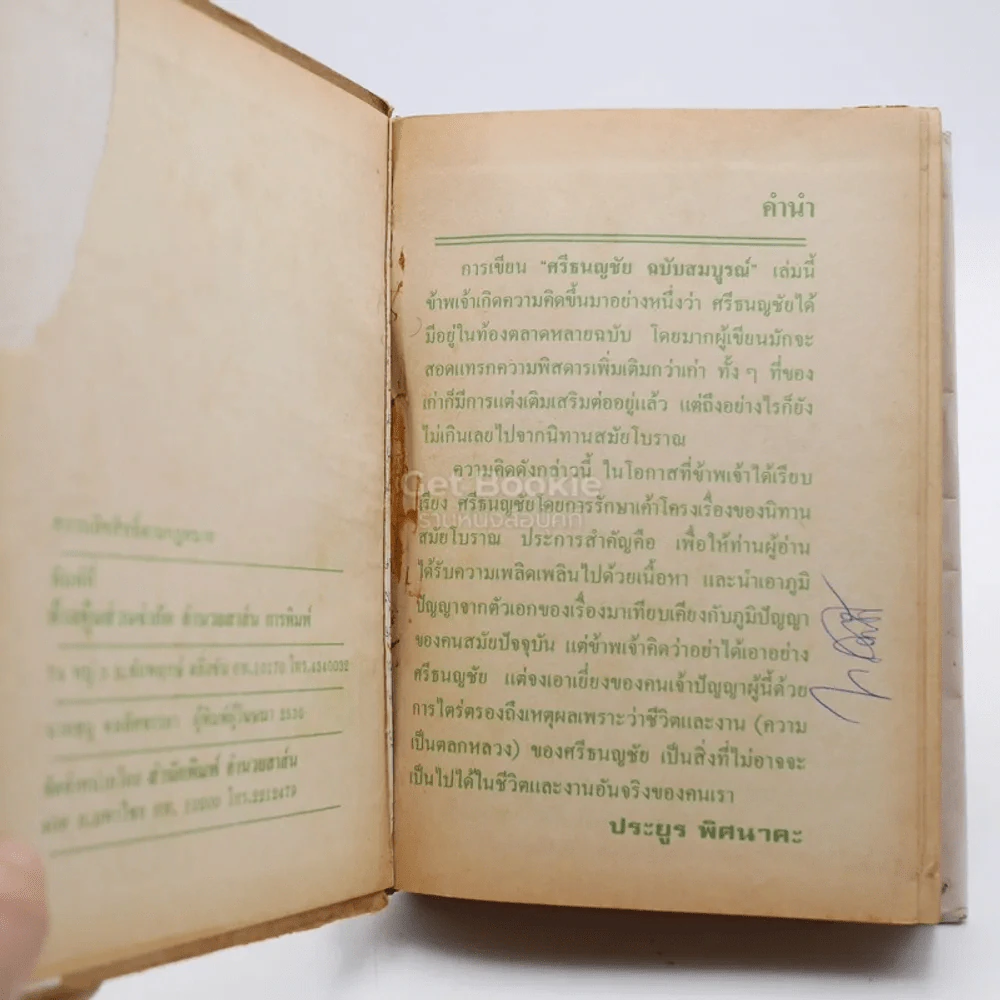 สงวนลิขสิทธิ์ตามกฎหมาย
พิมพ์ที่
ห้างหุ้นส่วนจำกัด อำนวยสาส์น การพิมพ์
ตลิ่งชัน กท.10170 โทร.4340032
ผู้พิมพ์ผู้โฆษณา 2530
จัดจำหน่ายโดย สำนักพิมพ์ อำนวยสาส์น
กท. 10200 โทร.2212479
คำนำ
การเขียน "ศรีธนญชัย ฉบับสมบูรณ์" เล่มนี้
ข้าพเจ้าเกิดความคิดขึ้นมาอย่างหนึ่งว่า ศรีธนญชัยได้
มีอยู่ในท้องตลาดหลายฉบับ โดยมากผู้เขียนมักจะ
สอดแทรกความพิสดารเพิ่มเติมกว่าเก่า ทั้ง ๆ ที่ของ
เก่าก็มีการแต่งเติมเสริมต่ออยู่แล้ว แต่ถึงอย่างไรก็ยัง
ไม่เกินเลยไปจากนิทานสมัยโบราณ
ความคิดดังกล่าวนี้ ในโอกาสที่ข้าพเจ้าได้เรียบ
เรียง ศรีธนญชัยโดยการรักษาเค้าโครงเรื่องของนิทาน
สมัยโบราณ ประการสำคัญคือ เพื่อให้ท่านผู้อ่าน
ได้รับความเพลิดเพลินไปด้วยเนื้อหา และนำเอาภูมิ
ปัญญาจากตัวเอกของเรื่องมาเทียบเคียงกับภูมิปัญญา
ของคนสมัยปัจจุบัน แต่ข้าพเจ้าคิดว่าอย่าได้เอาอย่าง
ศรีธนญชัย แต่จงเอาเยี่ยงของคนเจ้าปัญญาผู้นี้ด้วย
การไตร่ตรองถึงเหตุผลเพราะว่าชีวิตและงาน (ความ
เป็นตลกหลวง) ของศรีธนญชัย เป็นสิ่งที่ไม่อาจจะ
เป็นไปได้ในชีวิตและงานอันจริงของคนเรา
ประยูร พิศนาคะ
Get Bookie
ร้านหนังสือบุ๊คกี้